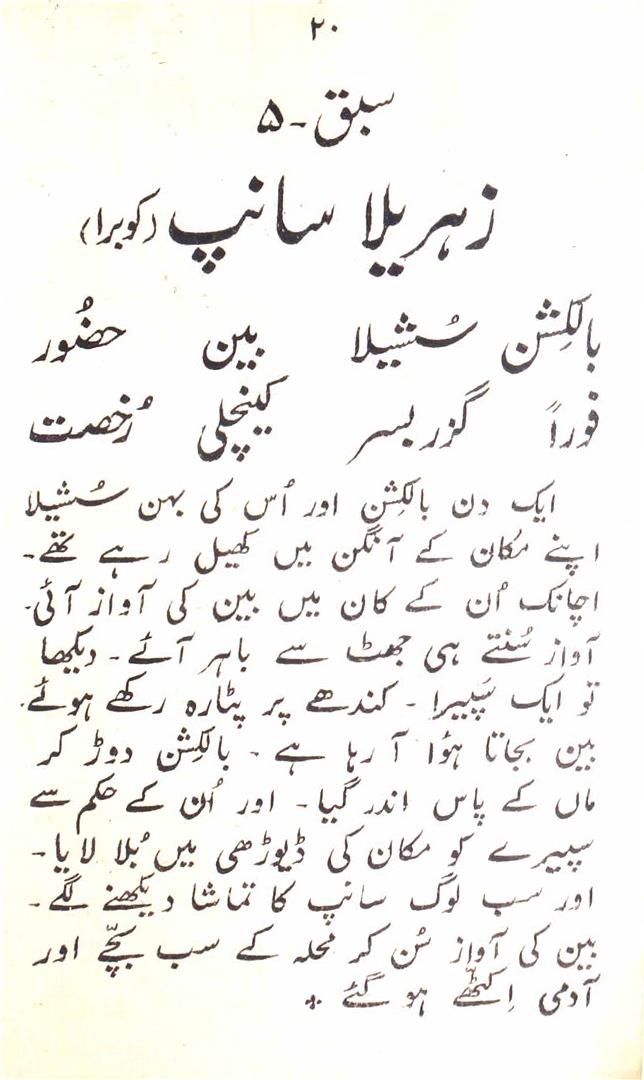 ۲۰
سبق ۔ ۵
زہریلا سانپ (کوبرا)
بالکِشن سُشیلا بین حضُور
فوراً گزر بسر کینچلی رُخصت
ایک دن بالکِشن اور اُس کی بہن سُشیلا
اپنے مکان کے آنگن میں کھیل رہے تھے۔
اچانک اُن کے کان میں بین کی آواز آئی۔
آواز سُنتے ہی جھٹ سے باہر آئے۔ دیکھا
تو ایک سَپیرا ۔ کندھے پر پٹارہ رکھے ہوئے
بین بجاتا ہؤا آ رہا ہے ۔ بالکِشن دوڑ کر
ماں کے پاس اندر گیا۔ اور اُن کے حکم سے
سپیرے کو مکان کی ڈیوڑھی میں بُلا لایا۔
اور سب لوگ سانپ کا تماشا دیکھنے لگے۔
بین کی آواز سُن کر محلہ کے سب بچّے اور
آدمی اِکٹھّے ہو گئے ٭